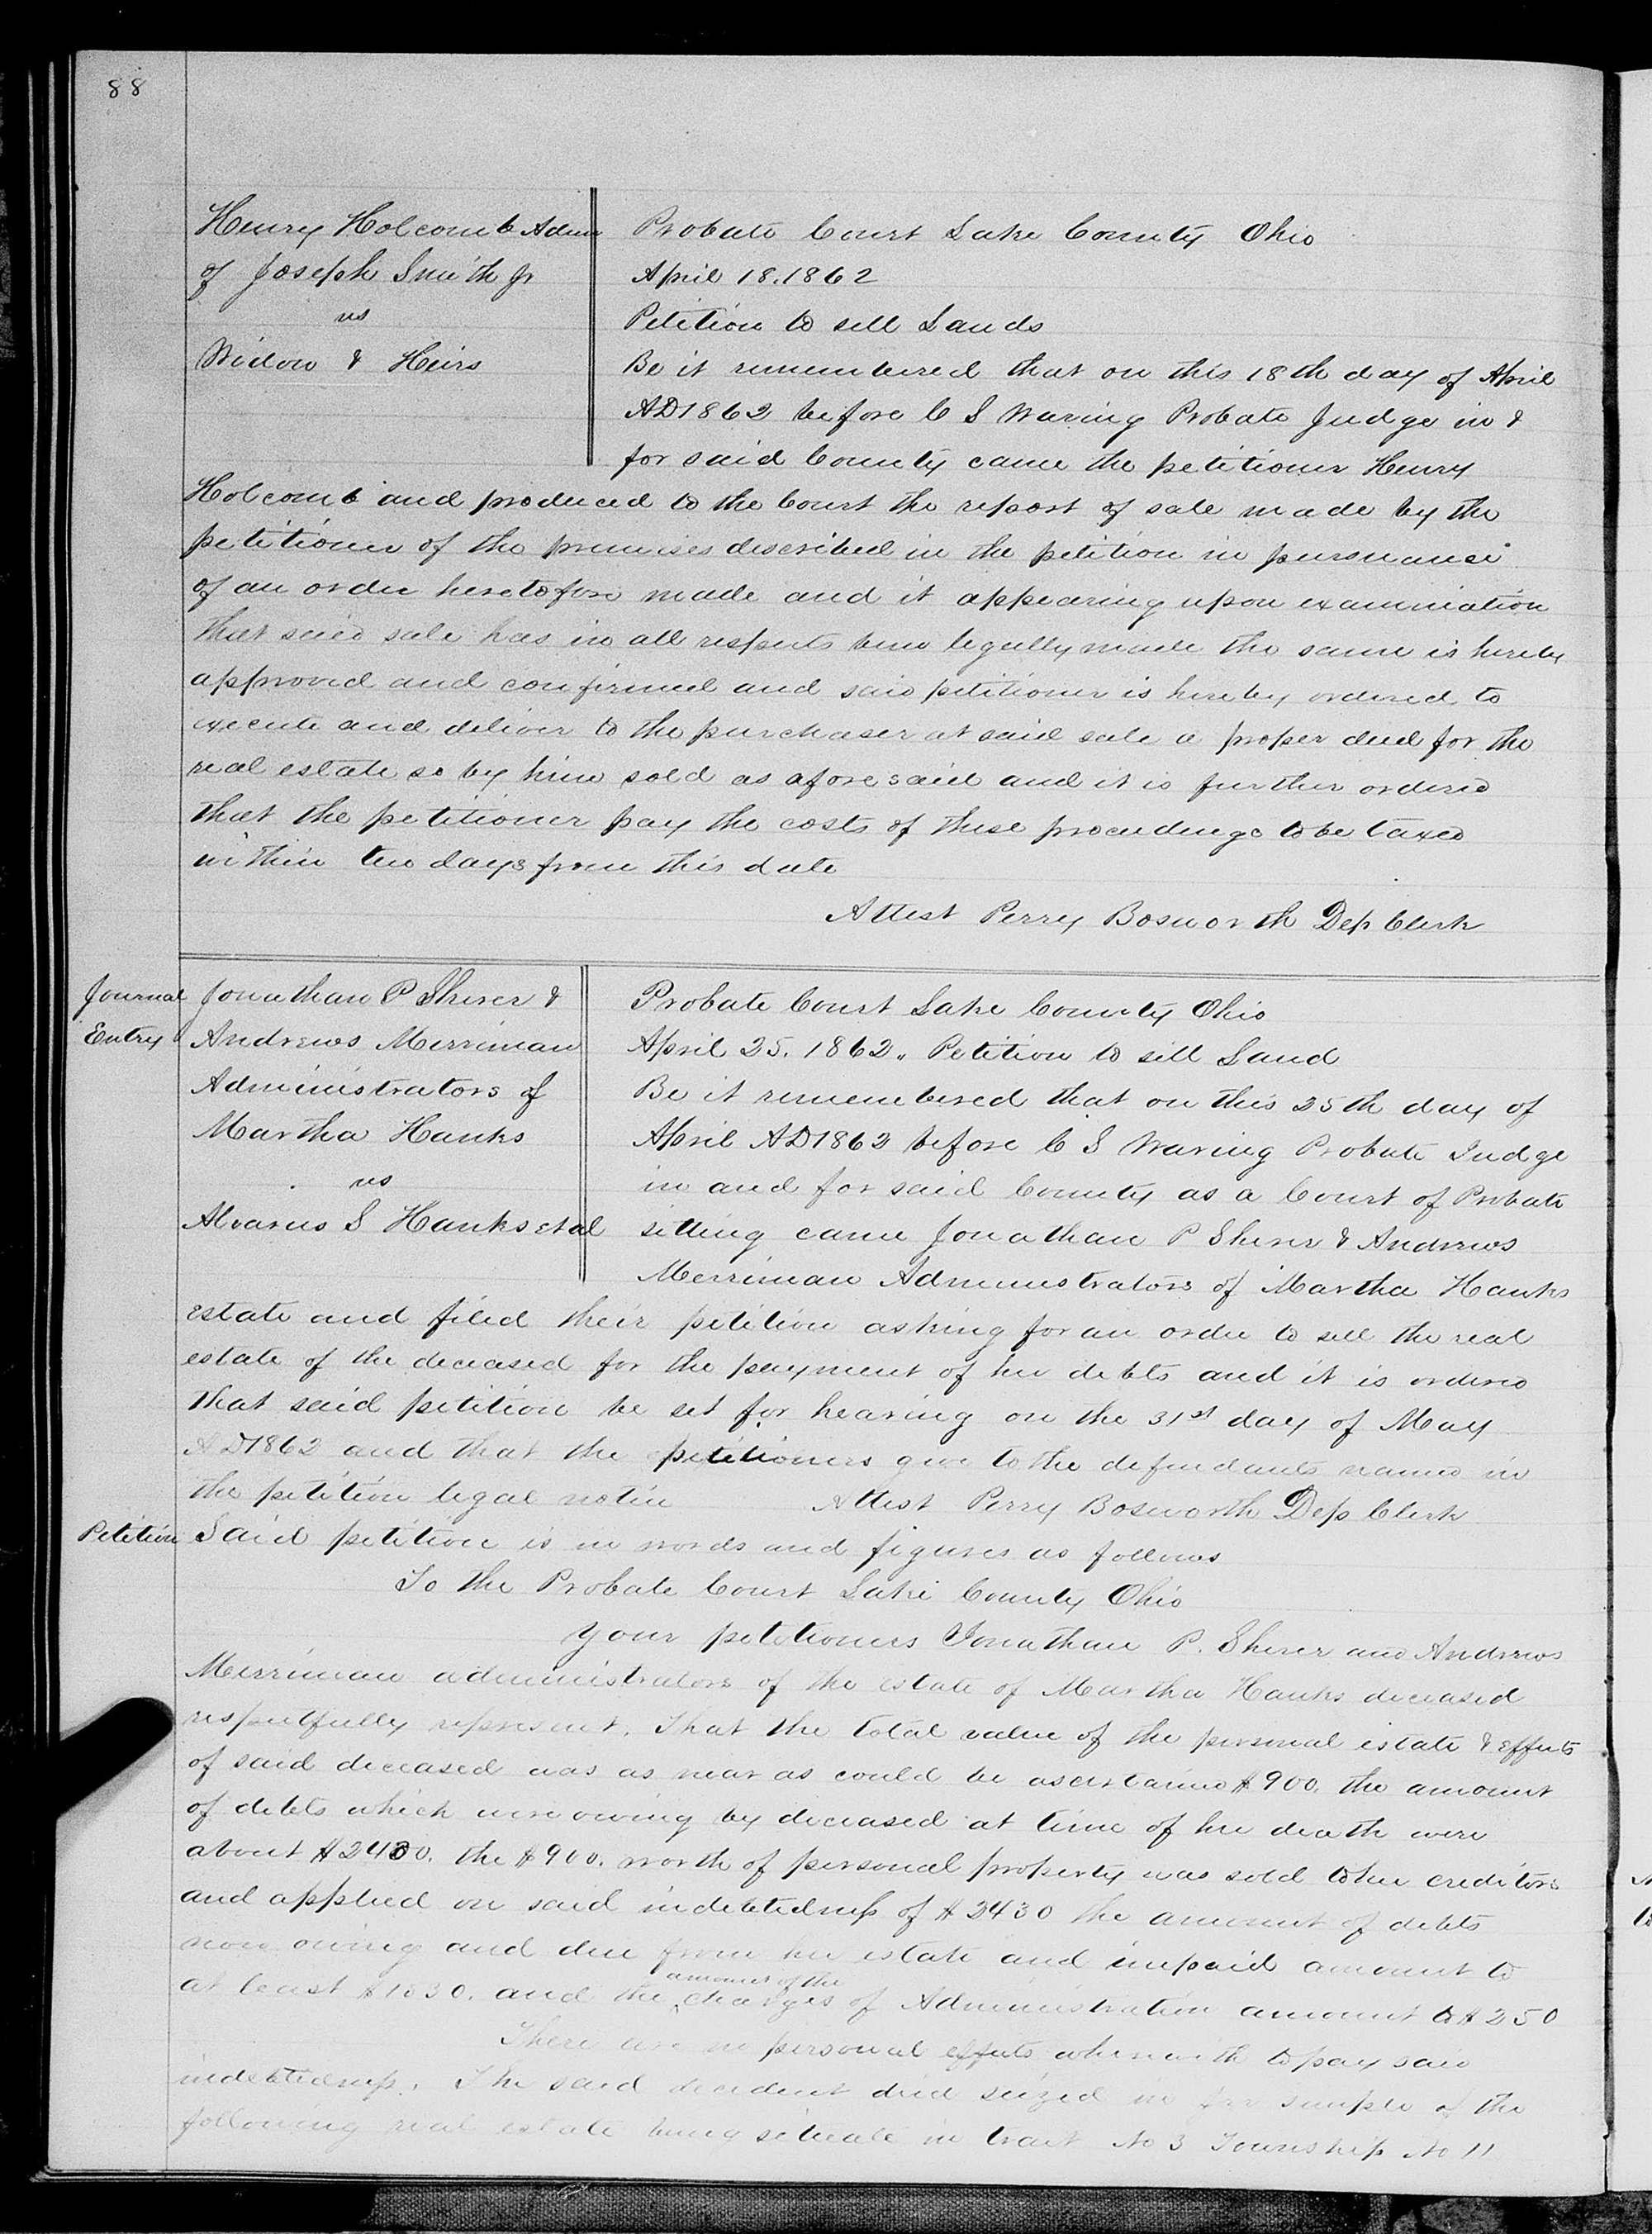 88
Henry Holcomb Adm
of Joseph Smith Jr
vs
Widow & Heirs
Probate Court Lake County Ohio
April 18. 1862
Petition to sell Lands
Be it remembered that on this 18th day of April
AD 1862 before C S Waring Probate Judge in &
for said County came the petitioner Henry
Holcomb and produced to the Court the report of sale made by the
petitioner of the premises described in the petition in pursuance
of an order heretofore made and it appearing upon examination
that said sale has in all respects been legally made the same is hereby
approved and confirmed and said petitioner is hereby ordered to
execute and deliver to the purchaser at said sale a proper deed for the
real estate so by him sold as aforesaid and it is further ordered
that the petitioner pay the costs of these proceedings to be taxed
within ten days from this date
Attest Perry Bosworth Dep Clerk
Journal
Entry
Jonathan P Sherer &
Andrews Merriman
Administrators of
Martha Hanks
vs
Alvarus S Hanks et al
Probate Court Lake County Ohio
April 25. 1862. Petition to sell Land
Be it remembered that on this 25th day of
April AD 1862 before C S Waring Probate Judge
in and for said County as a Court of Probate
sitting came Jonathan P Sherer & Andrews
Merriman Administrators of Martha Hanks
estate and filed their petition asking for an order to sell the real
estate of the deceased for the payment of her debts and it is ordered
that said petition be set for hearing on the 31st day of May
AD 1862 and that the petitioners give to the defendants named in
the petition legal notice Attest Perry Bosworth Dep Clerk
Petition Said petition is in words and figures as follows
To the Probate Court Lake County Ohio
Your petitioners Jonathan P. Sherer and Andrews
Merriman administrators of the estate of Martha Hanks deceased
respectfully represent. That the total value of the personal estate & effects
of said deceased was as near as could be ascertained $900. the amount
of debts which were owing by deceased at time of her death were
about $2430. the $900. worth of personal property was sold to her creditors
and applied on said indebtedness of $2430 the amount of debts
now owing and due from her estate and unpaid amount to
at least $1530. and the amount of the charges of Administration amount to $250
There are no personal effects wherewith to pay said
indebtedness. The said decedent died seized in fee simple of the
following real estate being situate in tract No 3 Township No 11